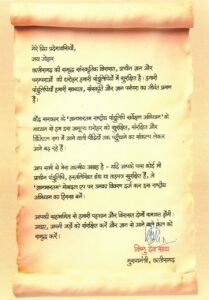 मेरे प्रिय प्रदेशवासियों,
जय जोहार
छत्तीसगढ़ की समृद्ध सांस्कृतिक विरासत, प्राचीन ज्ञान और
परम्पराओं की धरोहर हमारी पांडुलिपियों में सुरक्षित है। हमारी
पांडुलिपियाँ हमारी सभ्यता, संस्कृति और ज्ञान परंपरा का जीवंत प्रमाण
हैं।
केंद्र सरकार के 'ज्ञानभारतम राष्ट्रीय पांडुलिपि सर्वेक्षण अभियान' के
माध्यम से हम इस अमूल्य धरोहर को सुरक्षित, संरक्षित और
डिजिटल रूप में आने वाली पीढ़ियों तक पहुंचाने का संकल्प लेकर
आगे बढ़ रहे हैं।
आप सभी से मेरा आत्मीय आग्रह है - यदि आपके पास कोई भी
प्राचीन पांडुलिपि, हस्तलिखित ग्रंथ या ताड़पत्र सुरक्षित हैं, तो
'ज्ञानभारतम' मोबाइल एप पर उनका विवरण दर्ज कर इस राष्ट्रीय
अभियान का हिस्सा बनें।
आपकी सहभागिता से हमारी पहचान और विरासत दोनों सशक्त होंगी।
आइए, अपनी जड़ों को संरक्षित करें और ज्ञान से आने वाले कल को
समृद्ध करें।
विष्णु देव साय
मुख्यमंत्री, छत्तीसगढ़